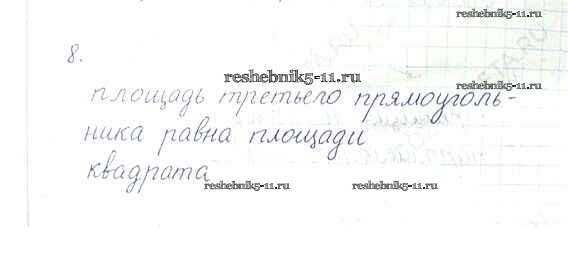 reshebnik5-11.ru
8.
reshebnik5-11.ru
reshebnik5-11.ru
площадь третьего прямоуголь-
ника равна площади
квадрата
reshebnik5-11.ru
reshebnik5-11.ru